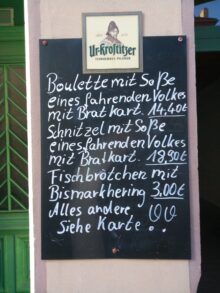 Ur-Krostitzer
FEINHERBES PILSNER
Boulette mit Soße
eines fahrenden Volkes
mit Bratkart. 14.40€
Schnitzel mit Soße
eines fahrenden Volkes
mit Bratkart. 18,90€
Fischbrötchen mit
Bismarkhering 3,00€
Alles andere
Siehe Karte..